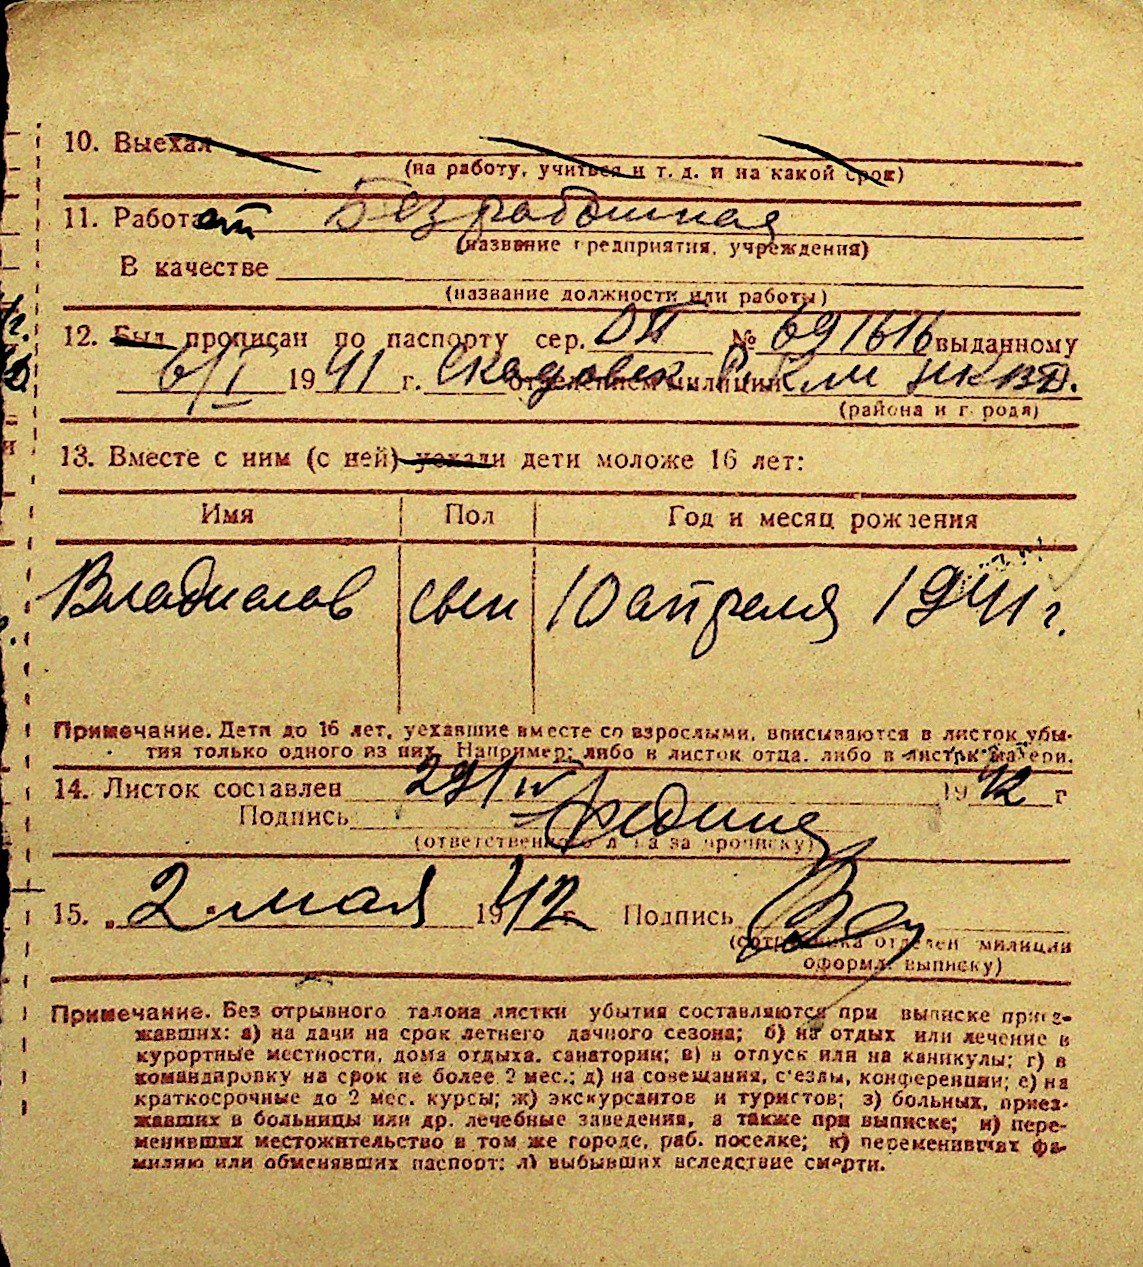 10. Выехал
(на работу, учиться и т. д. и на какой срок)
11. Работает Безработная
(название предприятия, учреждения)
В качестве
(название должности или работы)
12. Был прописан по паспорту сер. ОП № 691616 выданному
6/I 1941 г. Скадовск отделением милиции РКМ НКВД.
(района и города)
13. Вместе с ним (с ней) уехали дети моложе 16 лет:
Имя Пол Год и месяц рождения
Владислав сын 10 апреля 1941 г.
Примечание. Дети до 16 лет, уехавшие вместе со взрослыми, вписываются в листок убы-
тия только одного из них. Например: либо в листок отца, либо в листок матери.
14. Листок составлен 29/IV 1942 г
Подпись
(ответственного лица за прописку)
15. „2" мая 1942 г. Подпись
(сотрудника отделен. милиции
оформл. выписку)
Примечание. Без отрывного талона листки убытия составляются при выписке приез-
жавших: а) на дачи на срок летнего дачного сезона; б) на отдых или лечение в
курортные местности, дома отдыха, санатории; в) в отпуск или на каникулы; г) в
командировку на срок не более 2 мес.; д) на совещания, с'езды, конференции; е) на
краткосрочные до 2 мес. курсы; ж) экскурсантов и туристов; з) больных, приез-
жавших в больницы или др. лечебные заведения, а также при выписке; и) пере-
менивших местожительство в том же городе, раб. поселке; к) переменивших фа-
милию или обменявших паспорт; л) выбывших вследствие смерти.